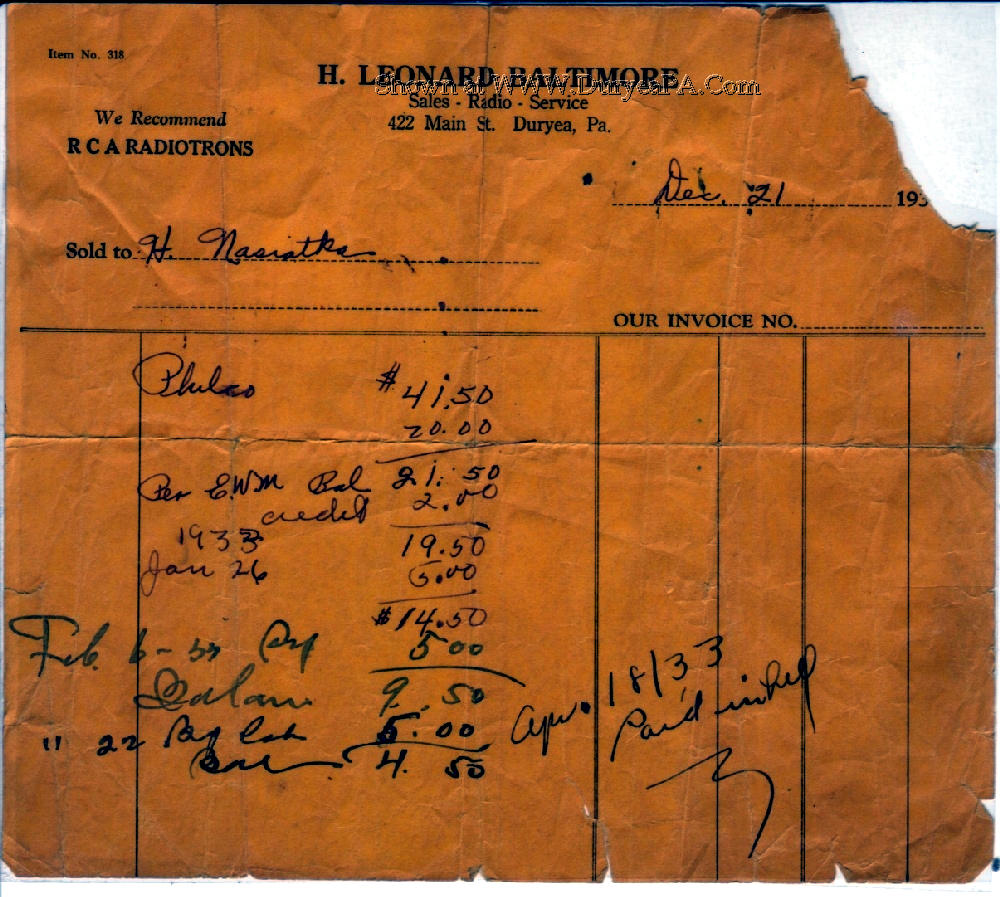 Item No. 318
H. LEONARD BALTIMORE
Shown at WWW.DuryeaPA.Com
Sales - Radio - Service
422 Main St. Duryea, Pa.
We Recommend
R C A RADIOTRONS
Dec. 21 193
Sold to H. Nasiatka
OUR INVOICE NO.
Philco $41.50
20.00
Per E.W.M Bal 21.50
credit 2.00
1933 19.50
Jan 26 5.00
$14.50
Feb. 6-33 5.00
Balance 9.50
" 22 By Cash 5.00
Bal 4.50
Apr. 18/33
Paid in full